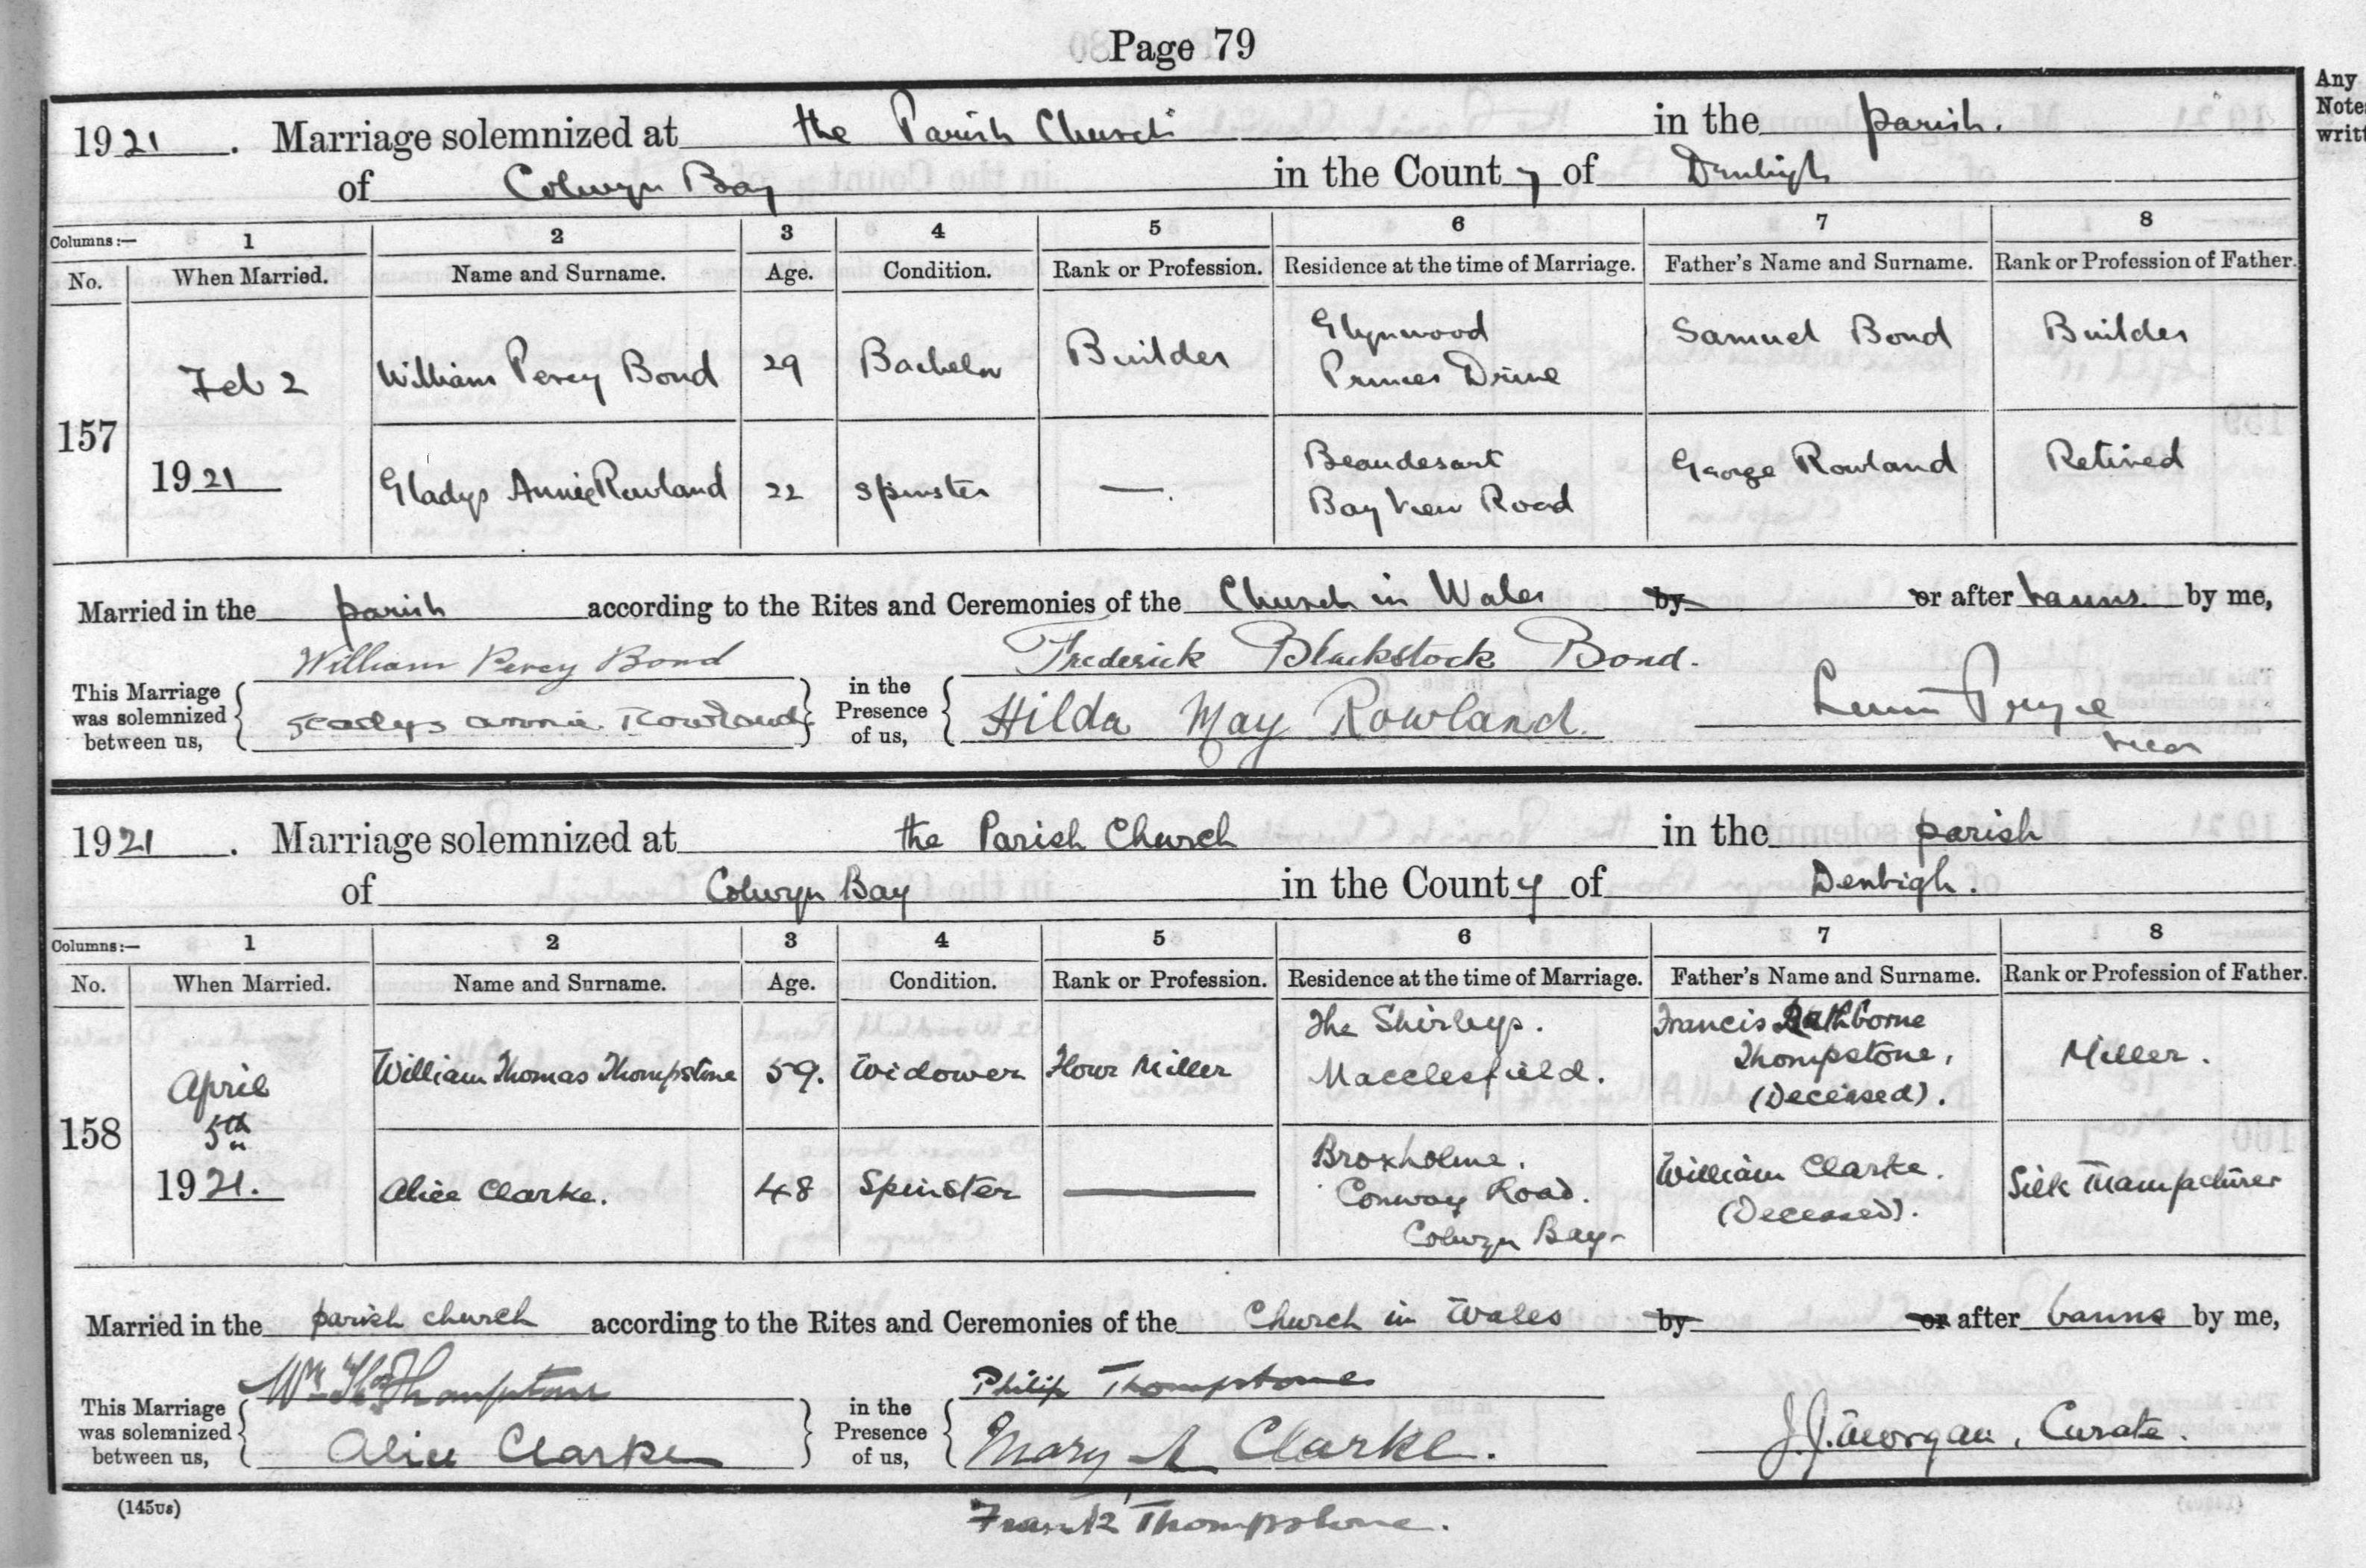 Page 79
Any
Note
writt
1921. Marriage solemnized at the Parish Church in the parish.
of Colwyn Bay in the County of Denbigh
Columns:— 1 2 3 4 5 6 7 8
No. When Married. Name and Surname. Age. Condition. Rank or Profession. Residence at the time of Marriage. Father's Name and Surname. Rank or Profession of Father.
157 Feb 2 1921
William Percy Bond 29 Bachelor Builder Glynwood Princes Drive Samuel Bond Builder
Gladys Annie Rowland 22 Spinster — Beaudesart Bay View Road George Rowland Retired
Married in the parish according to the Rites and Ceremonies of the Church in Wales by or after banns by me,
This Marriage was solemnized between us, William Percy Bond
Gladys Annie Rowland
in the Presence of us, Frederick Blackstock Bond.
Hilda May Rowland.
Pryce
Vicar
1921. Marriage solemnized at the Parish Church in the parish
of Colwyn Bay in the County of Denbigh.
Columns:— 1 2 3 4 5 6 7 8
No. When Married. Name and Surname. Age. Condition. Rank or Profession. Residence at the time of Marriage. Father's Name and Surname. Rank or Profession of Father.
158 April 5th 1921.
William Thomas Thompstone 59. Widower Flour Miller The Shirleys. Macclesfield. Francis Rathborne Thompstone, (Deceased). Miller.
Alice Clarke. 48 Spinster — Broxholme. Conway Road. Colwyn Bay. William Clarke. (Deceased). Silk Manufacturer
Married in the parish church according to the Rites and Ceremonies of the Church in Wales by or after banns by me,
This Marriage was solemnized between us, Wm Thos Thompstone
Alice Clarke
in the Presence of us, Philip Thompstone
Mary A Clarke.
J. J. Morgan, Curate.
(145us)
Frank Thompstone.